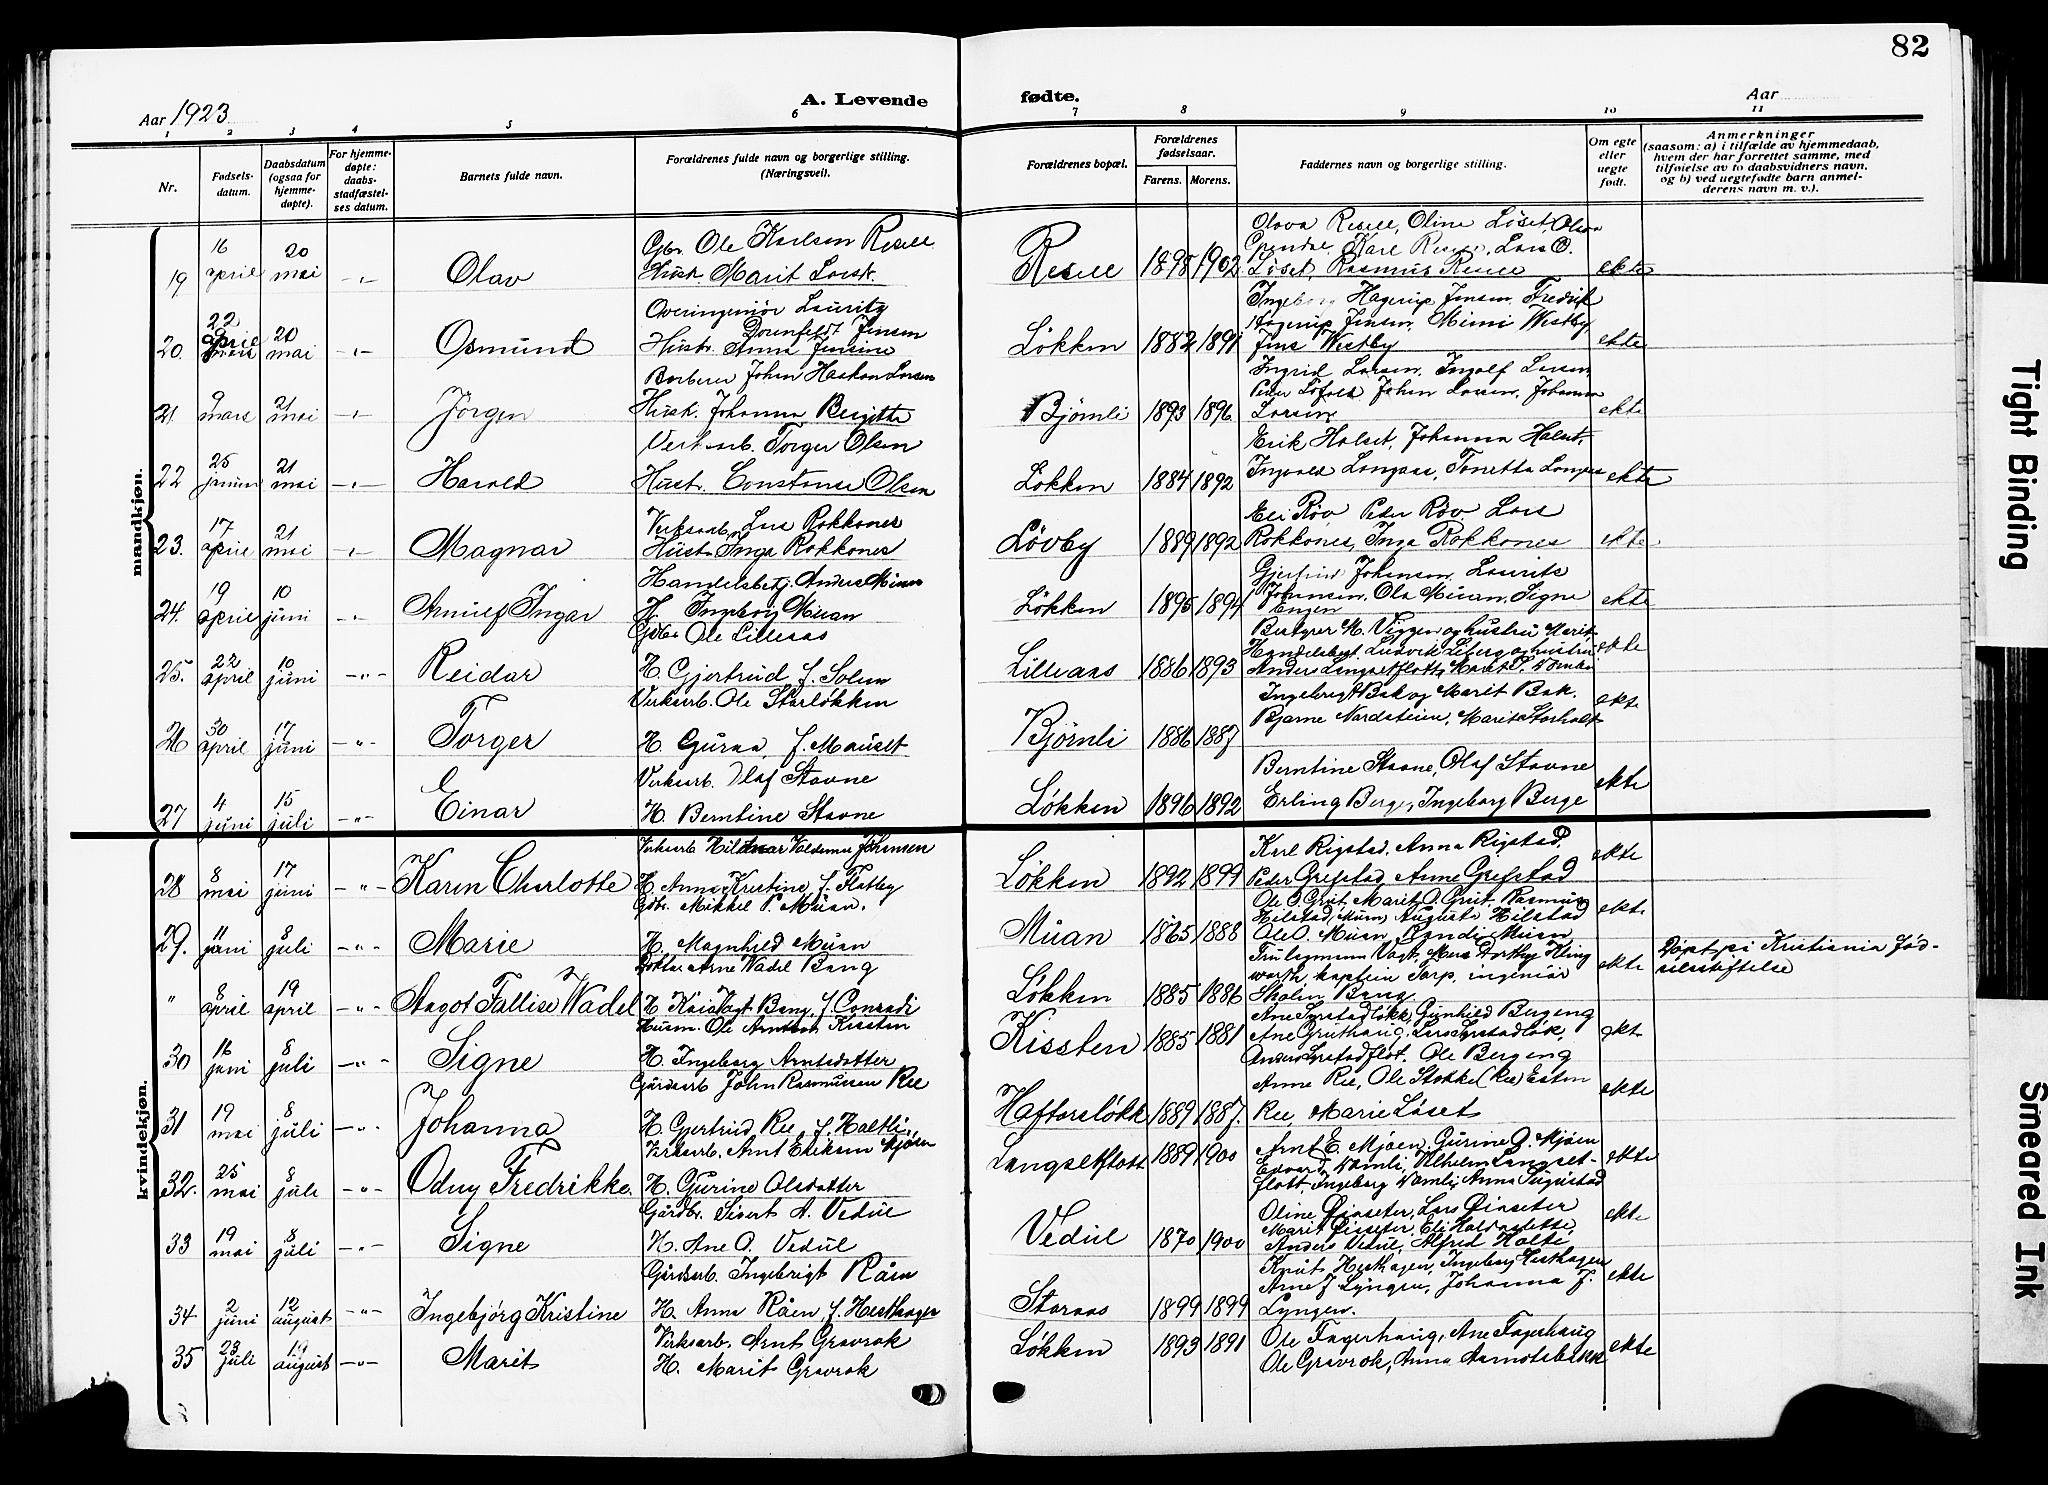 82
Aar 1923
A. Levende fødte.
Aar
1 2 3 4 5 6 7 8 9 10 11
Nr.
Fødsels-
datum.
Daabsdatum
(ogsaa for
hjemme-
døpte).
For hjemme-
døpte:
daabs-
stadfæstel-
ses datum.
Barnets fulde navn.
Forældrenes fulde navn og borgerlige stilling.
(Næringsvei).
Forældrenes bopæl.
Forældrenes
fødselsaar.
Farens. Morens.
Faddernes navn og borgerlige stilling.
Om egte
eller
uegte
født.
Anmerkninger
(saasom: a) i tilfælde av hjemmedaab,
hvem der har forrettet samme, med
tilføielse av to daabsvidners navn,
og b) ved uegtefødte barn anmel-
derens navn m. v.).
mandkjøn.
19 16 april 20 mai -„- Olav
Gbr. Ole Karlsen Resell
Hust. Marit Larsk.
Resell 1898 1902
Olava Resell, Oline Löset, Olava
Karl Resell, Lars O.
Löset, Rasmus Resell
ekte
20. 22 april 20 mai -„- Osmund
Overingeniør Lauritz
Dorenfeldt Jenssen
Hustr. Anna Jensine
Løkken 1882 1891
Ingeborg Hagerup Jenssen, Fredrik
Hagerup Jenssen, Mimi Westby,
Jens Westby
ekte
21. 9 mars 21 mai -„- Jörgen
Barberer Johan Haakon Larsen
Hust. Johanna Bergitte
Bjömli 1893 1896
Ingrid Larsen, Ingolf Larsen,
Peder Löfald, Johan Larsen, Johanna
Larsen
ekte
22 25 januar 21 mai -„- Harald
Verksarb. Torger Olsen
Hustr. Constanse Olsen
Løkken 1884 1892
Erik Halset, Johanna Halset,
Ingvald Langaas, Tonetta Langaas
ekte
23. 17 april 21 mai -„- Magnar
Verksarb. Lars Rokkones
Hustr. Inga Rokkones
Lövby 1889 1892
Eli Röv, Peder Röv, Lars
Rokkones, Inga Rokkones
ekte
24. 19 april 10 juni -„- Arnulf Ingar
Handelsbetj. Anders Muan
H. Ingeborg Muan
Løkken 1895 1894
Gjertrud Johansen, Laurits
Johansen, Ola Muan, Signe
Engen
ekte
25. 22 april 10 juni -„- Reidar
Gdbr. Ole Lilleaas
H. Gjertrud f. Solem
Lilleaas 1886 1893
Bestyrer M. Viggen og hustru Marit,
Handelsbest. Ludvik Liberg og hustru
ekte
26 30 april 17 juni -„- Torger
Verksarb. Ole Storløkken
H. Guraa, f. Mauset
Bjørnli 1886 1887
Ingebrigt Bak og Marit Bak.
Bjarne Nordsteien, Marit Storholt
ekte
27 4 juni 15 juli -„- Einar
Verksarb. Olaf Stavne
H. Berntine Stavne
Løkken 1896 1892
Berntine Stavne, Olaf Stavne
Erling Berge, Ingeborg Berge
ekte
kvindekjøn.
28 8 mai 17 juni -„- Karin Charlotte
Verksarb Hildmar Valdemar Johansen
H. Anna Kristine, f. Flatby
Løkken 1892 1899
Karl Rigstad, Anna Rigstad,
Peder Grefstad, Anne Grefstad
ekte
29. 11 juni 8 juli -„- Marie
Gdbr. Mikkel P. Muan.
H. Magnhild Muan
Muan 1865 1888
Ole O. Grut, Marit O. Grut, Rasmus
Hilstad, Muan, Auguste Hilstad
Ole O. Muan, Randi Muan
ekte
" 8 april 19 april -„- Aagot Fallise Wadel
Doktor Arne Wadel Bang
H. Kaia Vogt Bang, f. Conradi
Løkken 1885 1886
Fru Ingmann Vogt, Mrs Dorthy Kling
worth, kaptein Tarp, ingeniør
Bang
ekte
Døpt pi Kristiania Fød-
selsstiftelse
30 16 juni 8 juli -„- Signe
Husm. Ole Arntsen Kissten
H. Ingeborg Arntsdatter
Kissten 1885 1881
Ane Syrstadløkk, Gunhild Bergeng
Ane Gruthaug, Lars Syrstadløk,
Anders Syrstadflot, Ole Bergeng
ekt
31 19 mai 8 juli -„- Johanna
Gårdsarb John Rasmussen Ree
H. Gjertrud Ree, f. Holtli,
Haftorsløkk 1889 1887.
Anne Ree, Ole Stokke (Ree) Esten
Ree, Marie Löset
ekte
32. 25 mai 8 juli -„- Odny Fredrikke.
Verksarb. Arnt Eriksen Mjøen
H. Gurine Olsdatter
Langsetflott 1889 1900
Arnt E. Mjøen, Gurine O. Mjøen
Edvard Vamli, Vilhelm Langset-
flott, Ingeborg Vamli, Anna Fugustad
ekte
33 19 mai 8 juli -„- Signe
Gårdbr. Sivert A. Vedul
H. Ane O. Vedul
Vedul 1870 1900
Oline Dinseter, Lars Dinseter
Marit Dinseter, Eli
Anders Vedul, Alfred Holte
ekte
34 2 juni 12 august -„- Ingebjörg Kristine
Gårdsarb. Ingebrigt Råen
H. Anna Råen, f. Hesthagen
Storaas 1899 1899
Knut Hesthagen, Ingeborg Hesthagen
Arne J Lyngen, Johanna J.
Lyngen.
ekte
35 23 juli 19 august -„- Marit
Verksarb. Arnt Gravrok
H. Marit Gravrok
Løkken 1893 1891
Ole Fagerhaug, Ane Fagerhaug
Ole Gravrok, Anna Aarnotsbakk
ekte
Tight Binding
Smeared Ink